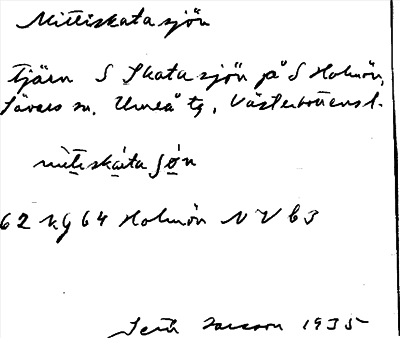 Mittiskatasjön
tjärn S Skatasjön på S Holmön,
Sävars sn. Umeå tg, Västerbottens l.
mìtiskáta ʃǿn
62 kg 64 Holmön NV b3
1935